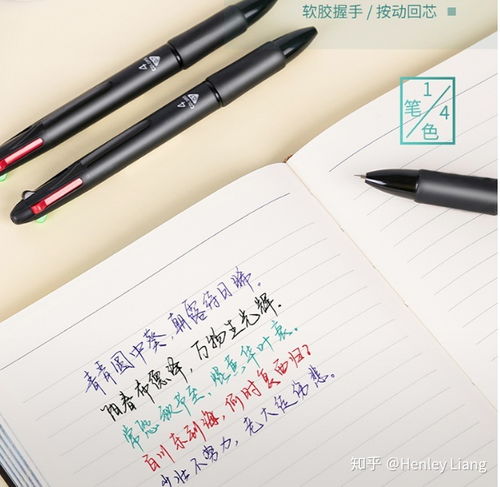 软胶握手 / 按动回芯
1笔/4色
4
4
青青園中葵，朝露待日晞.
阳春布德泽，万物生光辉.
常恐秋节至，焜黄华叶衰。
百川东到海，何时复西归？
少壮不努力，老大徒伤悲。
知乎 @Henley Liang